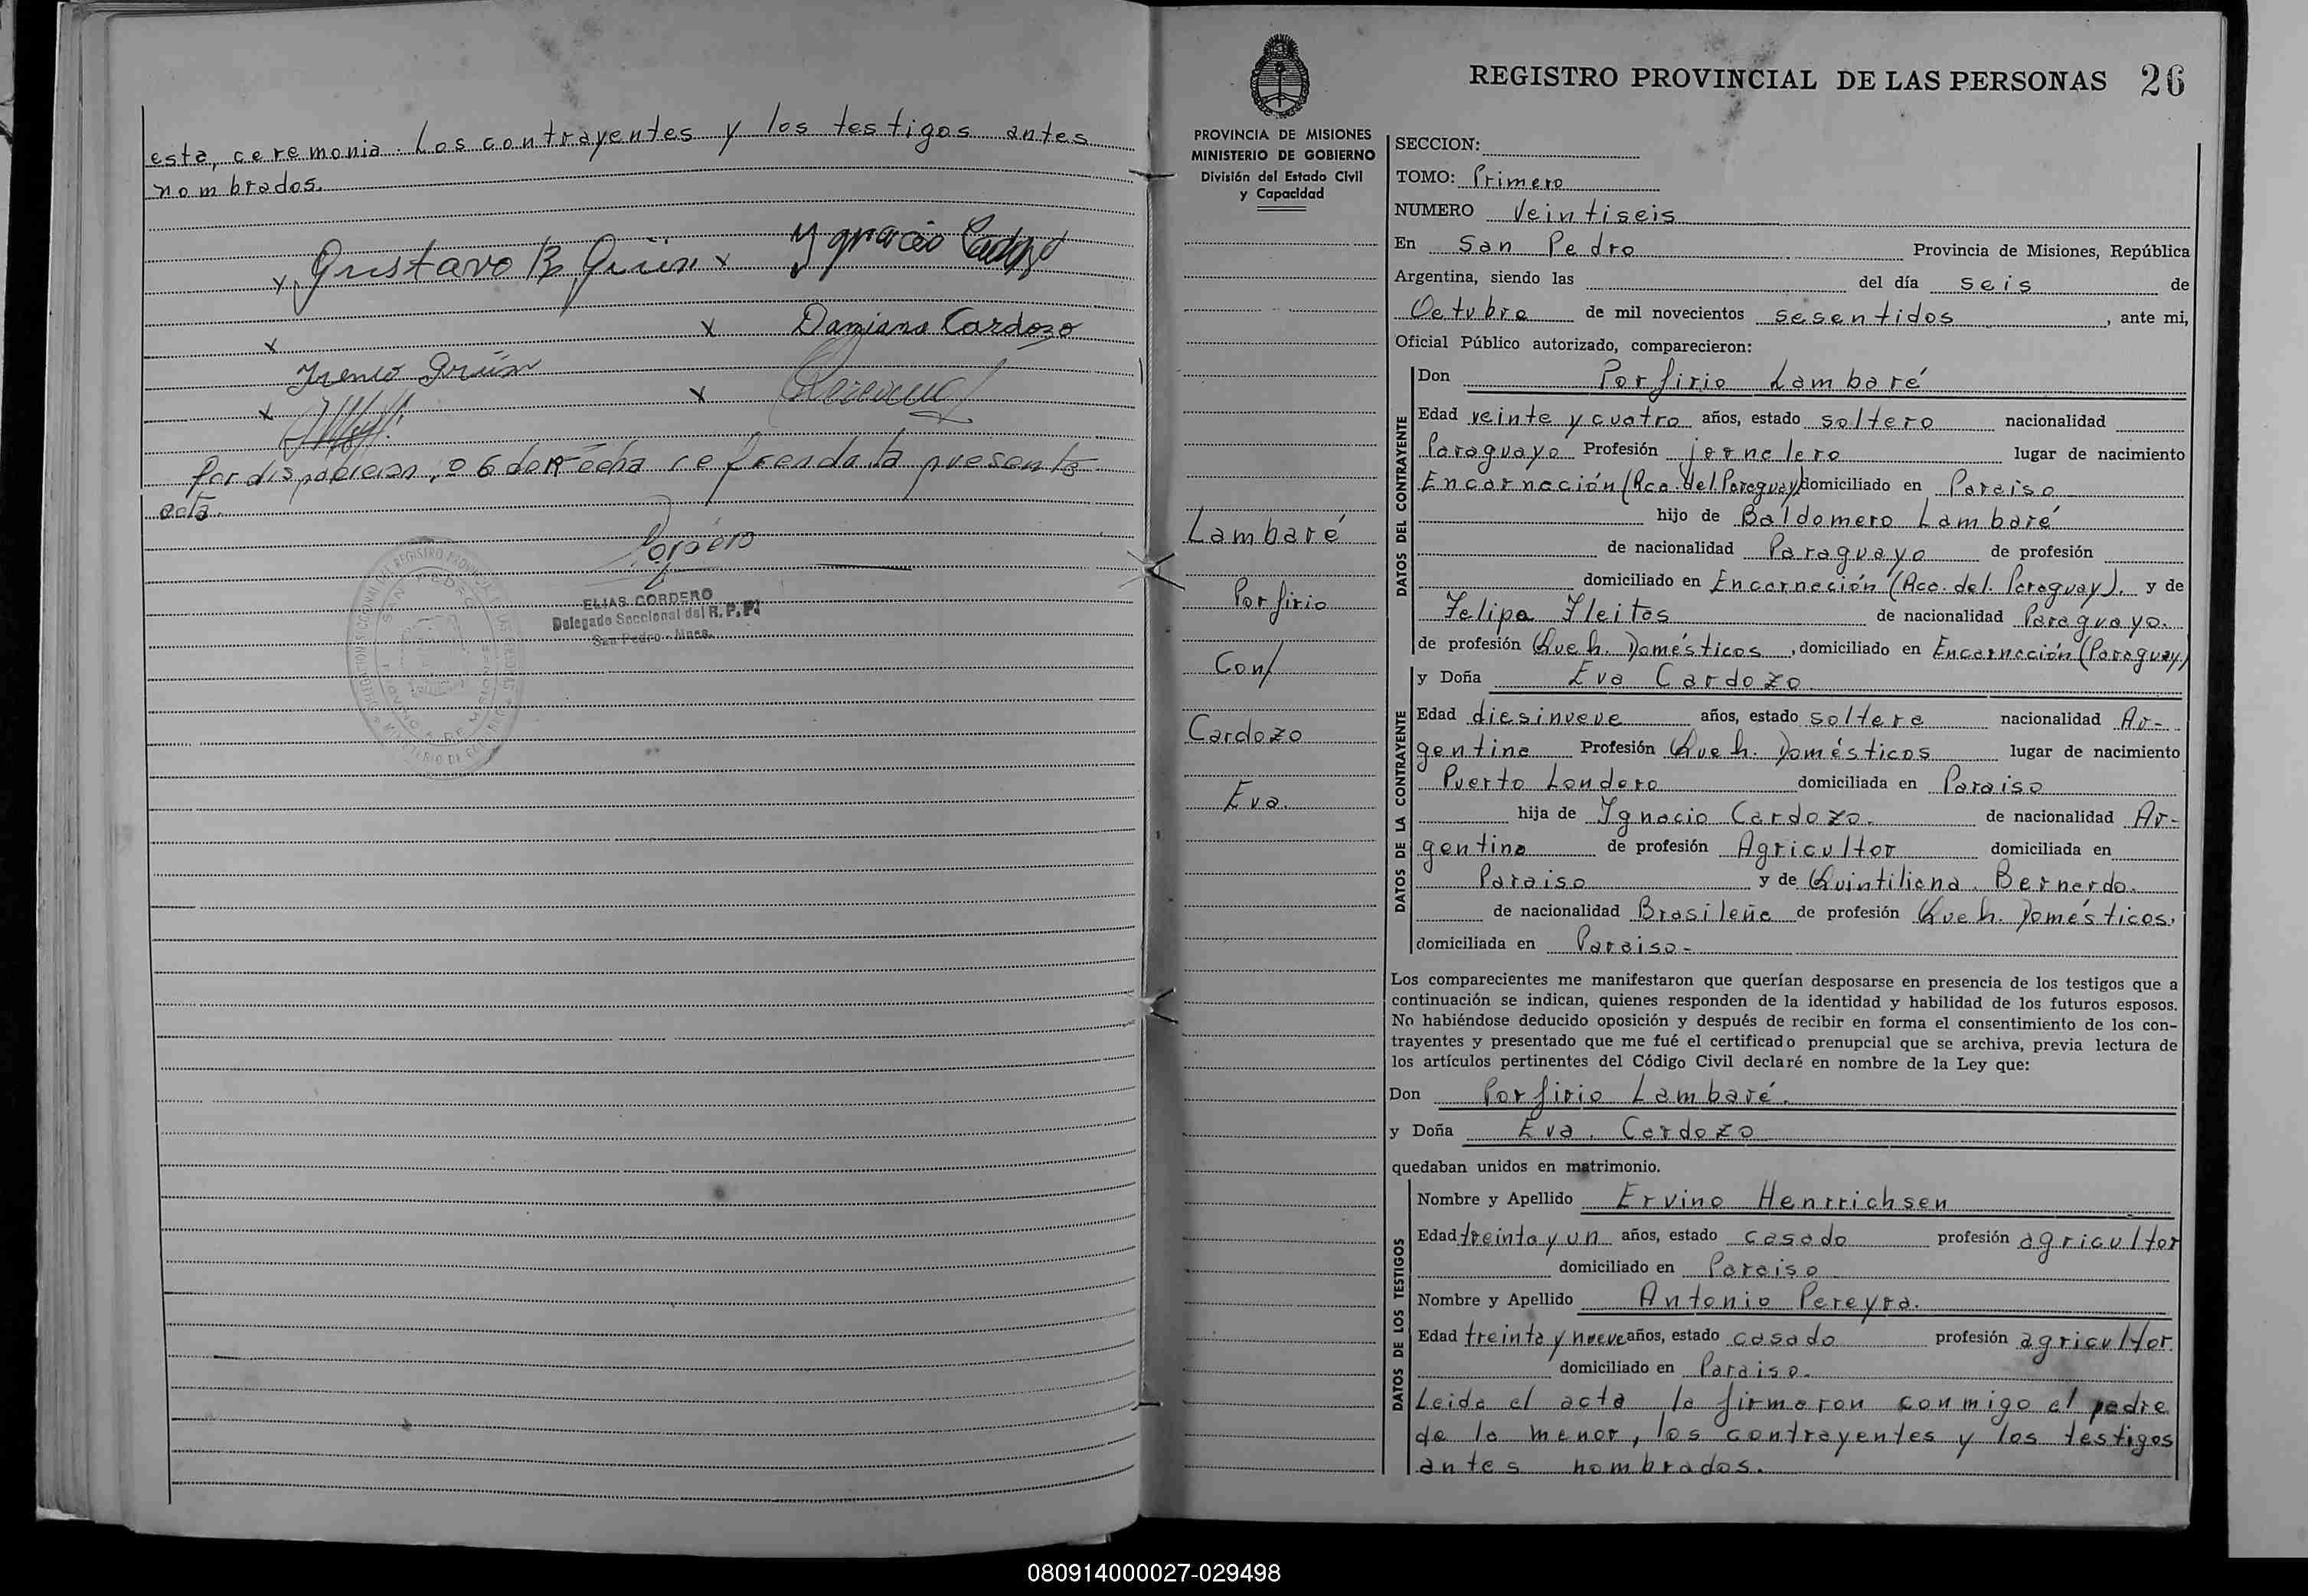 esta, ceremonia. Los contrayentes y los testigos antes
nombrados.
x Gustavo B. Grün x Ygnacio Cardozo
x Damiana Cardozo
x Ireneo Grün
x
x
Por disposición, o 6 de fecha refrenda la presente
acta.
Cordero
ELIAS CORDERO
Delegado Seccional del R. P. P.
San Pedro - Mnes.
PROVINCIA DE MISIONES
MINISTERIO DE GOBIERNO
División del Estado Civil
y Capacidad
Lambaré
Porfirio
Con/
Cardozo
Eva.
REGISTRO PROVINCIAL DE LAS PERSONAS 26
SECCION:
TOMO: Primero
NUMERO Veintiseis
En San Pedro Provincia de Misiones, República
Argentina, siendo las del día seis de
Octubre de mil novecientos sesentidos, ante mi,
Oficial Público autorizado, comparecieron:
DATOS DEL CONTRAYENTE
Don Porfirio Lambaré
Edad veinte y cuatro años, estado soltero nacionalidad
Paraguayo Profesión jornalero lugar de nacimiento
Encarnación (Rca. del Paraguay) domiciliado en Paraiso
hijo de Baldomero Lambaré
de nacionalidad Paraguayo de profesión
domiciliado en Encarnación (Rca. del. Paraguay). y de
Felipa Fleitas de nacionalidad Paraguaya.
de profesión Queh. Domésticos, domiciliado en Encarnación (Paraguay)
DATOS DE LA CONTRAYENTE
y Doña Eva Cardozo
Edad diesinueve años, estado soltera nacionalidad Ar-
gentina Profesión Queh. Domésticos lugar de nacimiento
Puerto Londero domiciliada en Paraiso
hija de Ignacio Cardozo. de nacionalidad Ar-
gentina de profesión Agricultor domiciliada en
Paraiso y de Quintiliana Bernardo.
de nacionalidad Brasileña de profesión Queh. Domésticos.
domiciliada en Paraiso-
Los comparecientes me manifestaron que querían desposarse en presencia de los testigos que a
continuación se indican, quienes responden de la identidad y habilidad de los futuros esposos.
No habiéndose deducido oposición y después de recibir en forma el consentimiento de los con-
trayentes y presentado que me fué el certificado prenupcial que se archiva, previa lectura de
los artículos pertinentes del Código Civil declaré en nombre de la Ley que:
Don Porfirio Lambaré.
y Doña Eva. Cardozo
quedaban unidos en matrimonio.
DATOS DE LOS TESTIGOS
Nombre y Apellido Ervino Henrrichsen
Edad treinta y un años, estado casado profesión agricultor
domiciliado en Paraiso
Nombre y Apellido Antonio Pereyra.
Edad treinta y nueve años, estado casado profesión agricultor.
domiciliado en Paraiso.
Leida el acta la firmaron conmigo el padre
de la menor, los contrayentes y los testigos
antes nombrados.
080914000027-029498